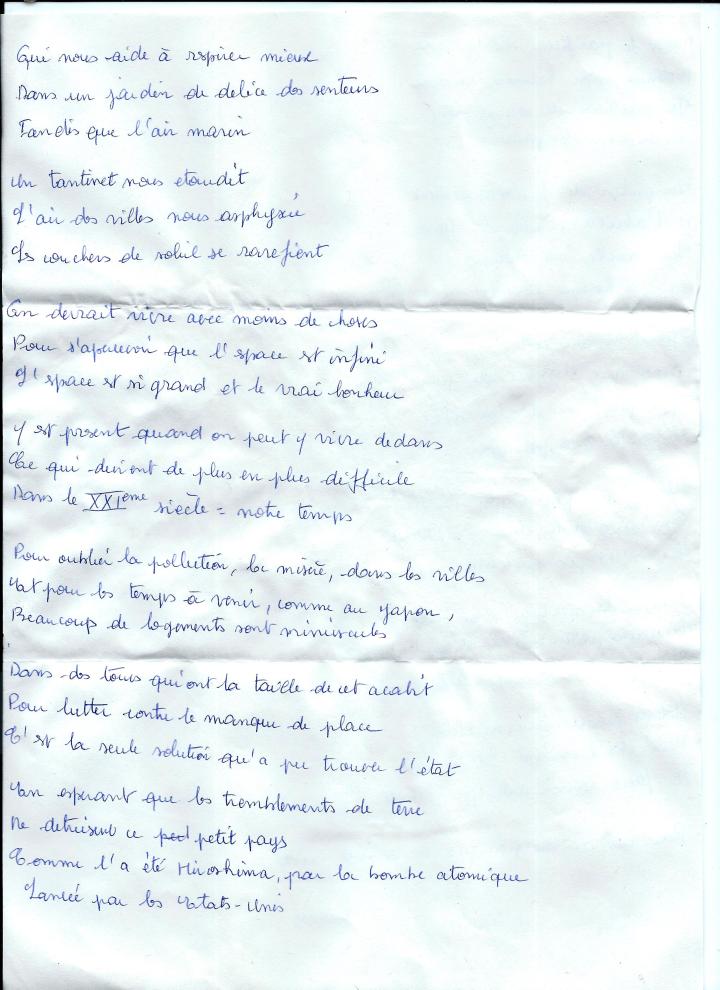 Qui nous aide à respirer mieux
Dans un jardin de delice des senteurs
Tandis que l'air marin
Un tantinet nous etourdit
L'air des villes nous asphyxié
Les couchers de soleil se rarefient
On devrait vivre avec moins de choses
Pour s'apercevoir que l'espace est infini
L'espace est si grand et le vrai bonheur
Y est present quand on peut y vivre dedans
Ce qui devient de plus en plus difficile
Dans le XXIème siècle = notre temps
Pour oublier la pollution, la misère, dans les villes
Et pour les temps à venir, comme au Japon,
Beaucoup de logements sont minuscules
Dans des tours qui ont la taille de cet
Pour lutter contre le manque de place
C'est la seule solution qu'a pu trouver l'état
En esperant que les tremblements de terre
Ne detruisent ce petit pays
Comme l'a été Hiroshima, par la bombe atomique
Lancée par les Etats-Unis